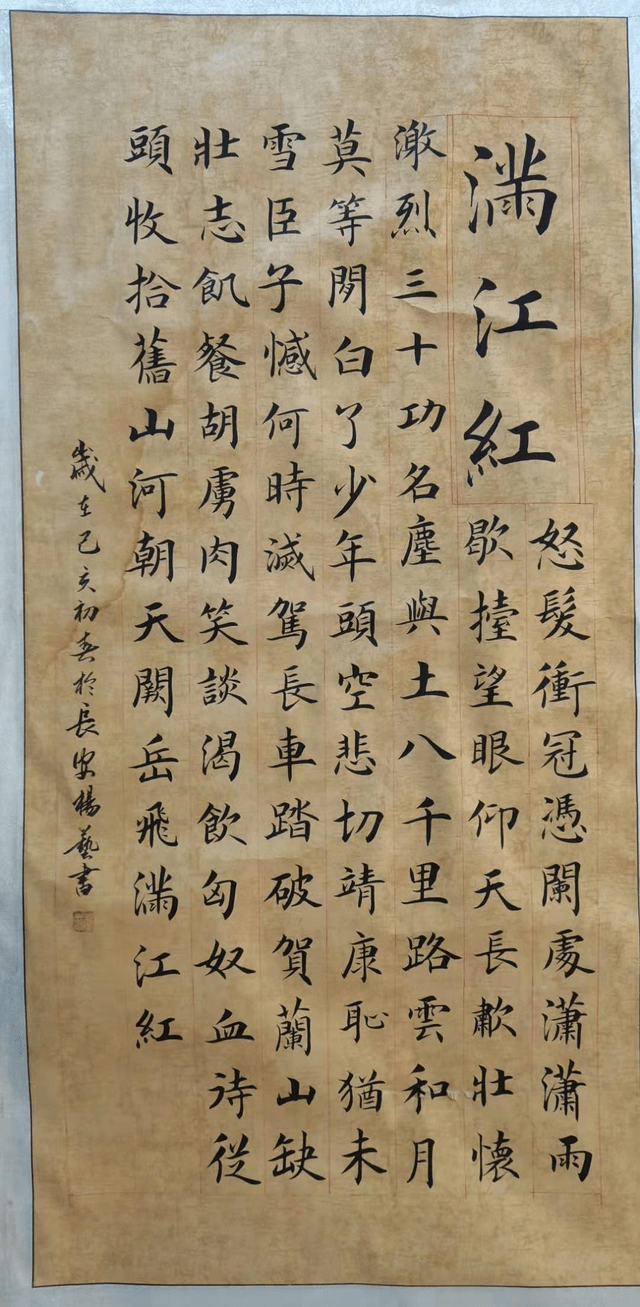 滿江紅
怒髮衝冠憑闌處瀟瀟雨
歇擡望眼仰天長歗壮懷
激烈三十功名塵與土八千里路雲和月
莫等閒白了少年頭空悲切靖康恥猶未
雪臣子憾何時滅駕長車踏破賀蘭山缺
壮志飢餐胡虜肉笑談渴飲匈奴血待從
頭收拾舊山河朝天闕岳飛滿江紅
歲在己亥初春於長安楊藝書